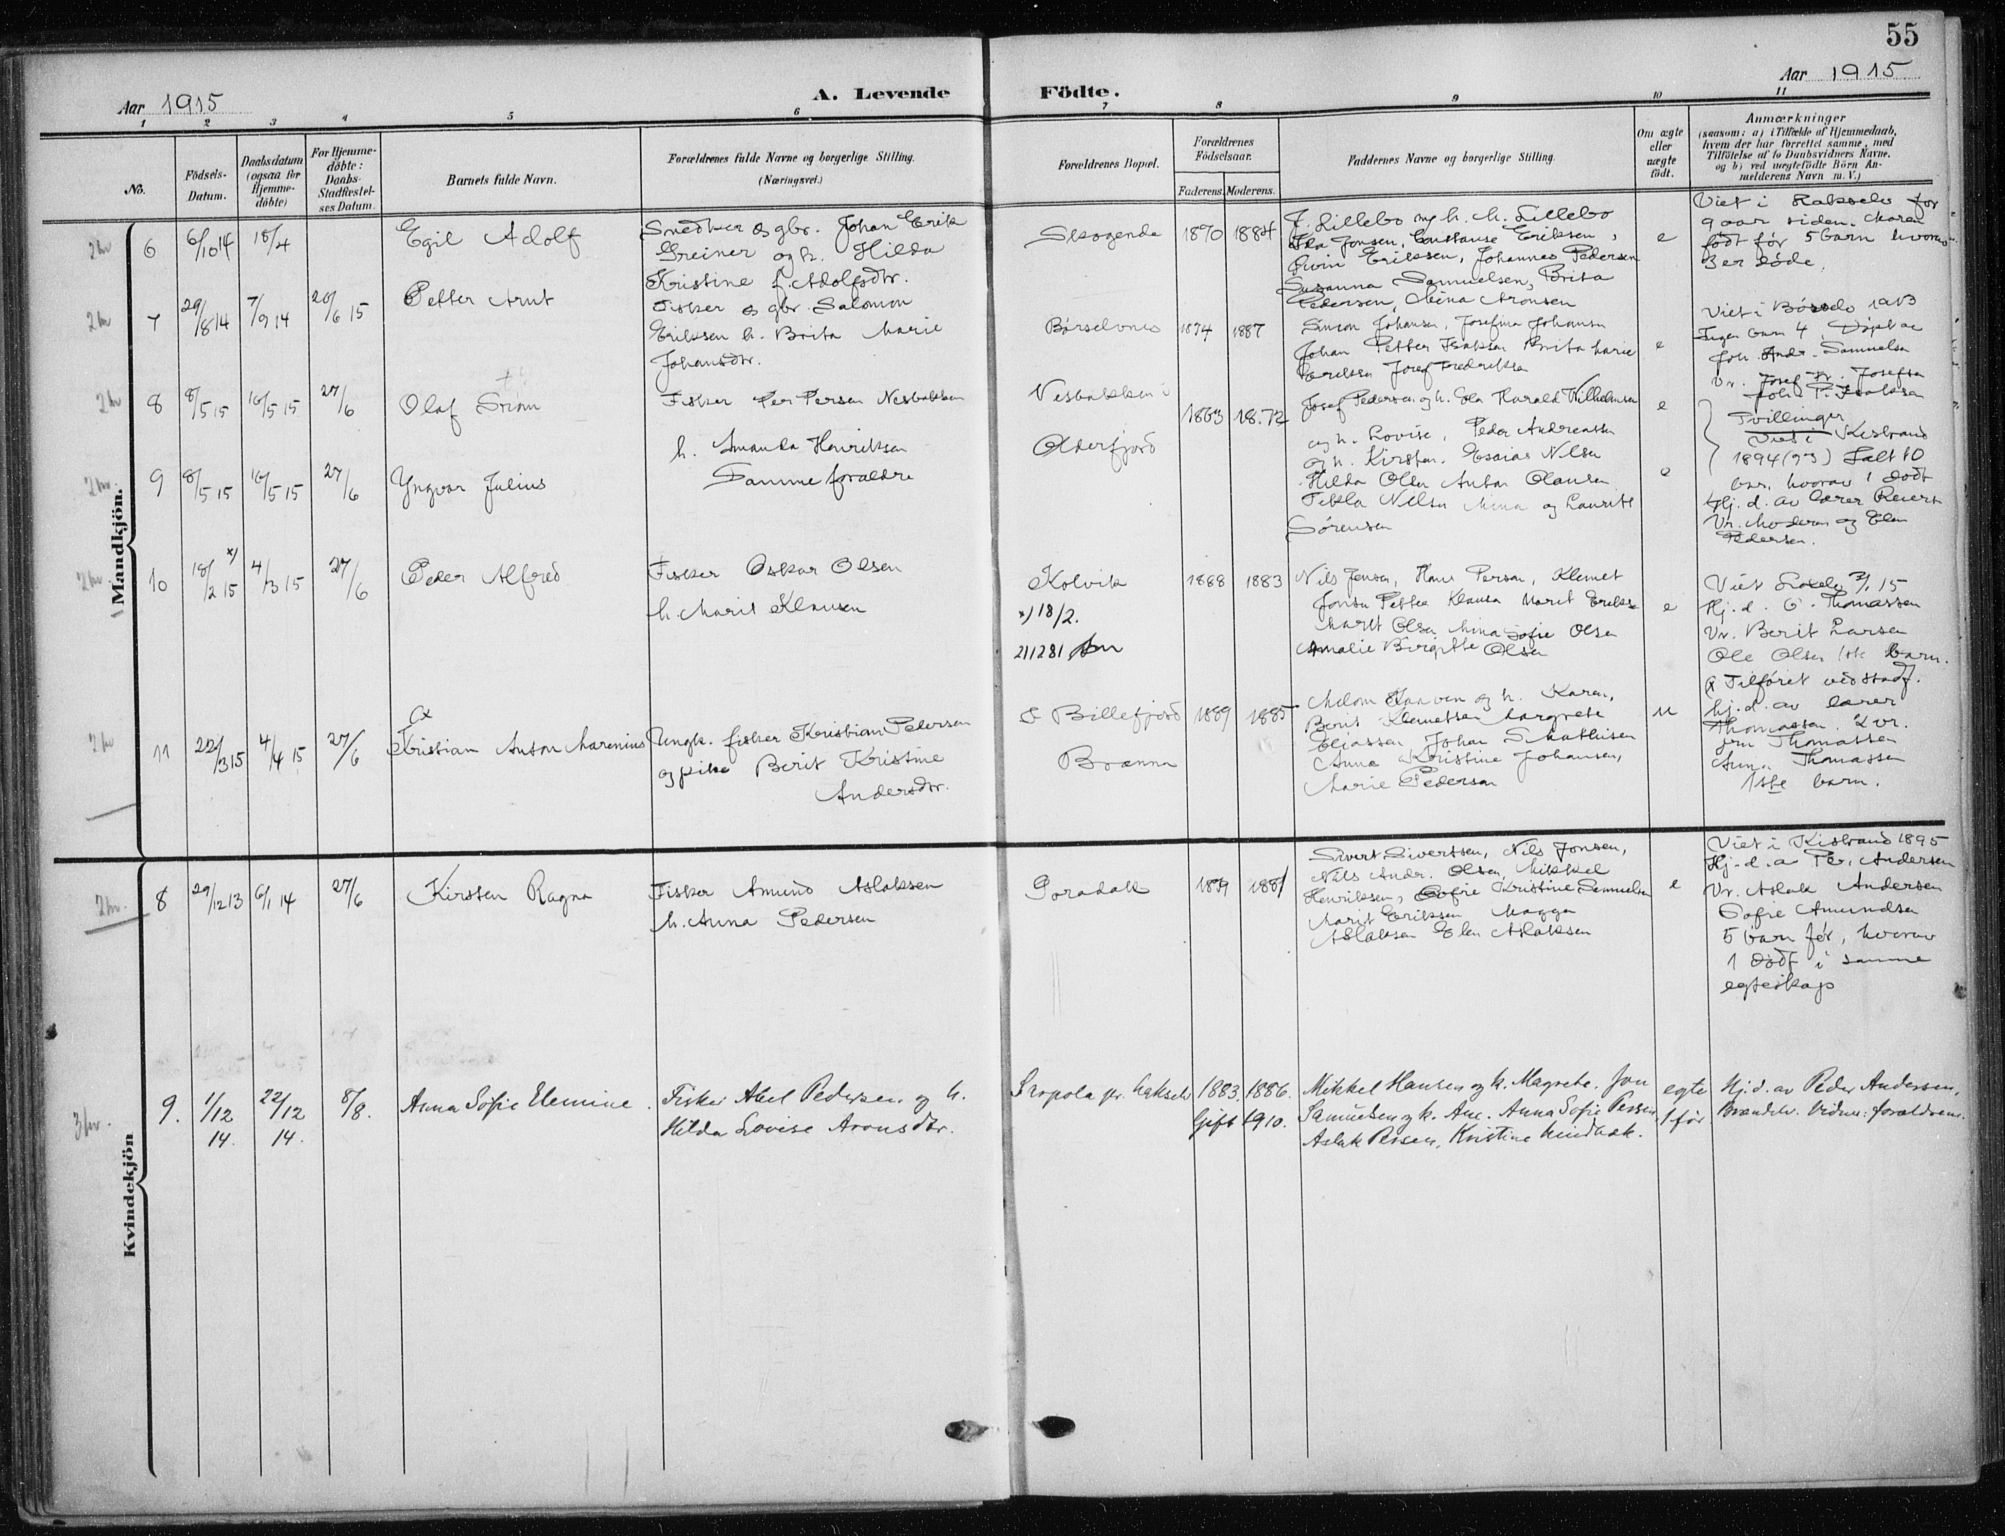 55
Aar 1915
A. Levende Födte.
Aar 1915
1 2 3 4 5 6 7 8 9 10 11
No.
Födsels-
Datum.
Daabsdatum
(ogsaa for
Hjemme-
döbte)
For Hjemme-
döbte:
Daabs-
Stadfestel-
ses Datum.
Barnets fulde Navn.
Forældrenes fulde Navne og borgerlige Stilling.
(Næringsvei.)
Forældrenes Bopæl.
Forældrenes
Födselsaar.
Faderens. Moderens.
Faddernes Navne og borgerlige Stilling.
Om ægte
eller
uægte
födt.
Anmærkninger
(saasom: a) i Tilfælde af Hjemmedaab,
hvem der har forrettet samme, med
Tilföielse af to Daabsvidners Navne,
og b) ved uægtefödte Börn An-
melderens Navn m. V.)
Mandkjön.
6 6/10 14 18/4 Egil Adolf
Snedker og gbr. Johan Erik
Greiner og h. Hilda
Kristine f. Adolfsdtr.
Skoganda 1870 1884
J. Lillebo og h. M. Lillebo
Ida Jonsen, Constanse Eriksen,
Eriksen, Johannes Pedersen
Susanna Samuelsen, Brita
Pedersen, Mina Aronsen
e
Viet i for
9 aar siden. Moren
født før 5 barn hvorav
3 er døde.
7 29/8 14 7/9 14 20/6 15 Petter Arnt
Fisker og gbr. Salomon
Eriksen h. Brita Marie
Johansdtr.
Børselvnes 1874 1887
Simon Johansen, Josefina Johansen
Johan Petter Isaksen Brita Marie
Eriksen Josef Fredriksen
e
Viet i Børselv 1913
Ingen barn 4 Døpt av
Joh. Andr. Samuelsen
Vr. Josef Fr. Josefsen
Joh. P. Isaksen
8 8/5 15 16/5 15 27/6 Olaf
Fisker Per Persen Nesbakken
h. Amanda Henriksen
Nesbakken i
Olderfjord
1863 1872
Josef Pedersen og h. Ela Harald Vilhelmsen
og h. Lovise, Peder Andreassen
og h. Kirsten. Esaias Nilsen
e
Tvillinger
Viet i Kistrand
1894 (93) Ialt 10
barn, hvorav 1 dødt
9 8/5 15 16/5 15 27/6 Yngvar Julius
Samme forældre
Hilda Olsen Anton Olausen
Tekla Nilsen Mina og Laurits
Sørensen
e
Hj. d. av lærer
Vr. Moderen og Elen
Pedersen.
10 18/2 15 x) 4/3 15 27/6 Peder Alfred
Fisker Oskar Olsen
h. Marit Klausen
Kolvik 1888 1883
x) 18/2.
211281
Nils Jensen, Hans Persen, Klemet
Jonsen Petter Klausen Marit Eriksen
Marit Olsen Mina Sofie Olsen
Amalie Birgitte Olsen
e
Viet Lakselv 2/1 15
Hj. d. O. Thomassen
Vr. Berit Larsen
Ole Olsen 1ste barn.
x Tilføiet ved stadf.
11 22/3 15 4/4 15 27/6 Kristian Anton Marenius
Ungk. fisker Kristian Pedersen
og pike Berit Kristine
Andersdtr.
Billefjord 1889 1885
Brenna
og h. Karen,
Berit Klemetsen Margrete
Eliassen, Johan
Anna Kristine Johansen,
Marie Pedersen
u
hj. d. av lærer
Thomassen. 2 vr.
fru Thomassen
Anna Thomassen
1ste barn.
Kvindekjön
8 29/12 13 6/1 14 27/6 Kirsten Ragna
Fisker Amund Aslaksen
h. Anna Pedersen
e
Sivert Sivertsen, Nils Jonsen,
Nils Andr. Olsen, Mikkel
Henriksen, Sofie Kristine Samuelsen
Marit Eriksen Magga
Aslaksen Elen Aslaksen
Viet i Kistrand 1895
Hj. d. a Per. Andersen
Vr. Aslak Andersen
Sofie Amundsen
5 barn før, hvorav
1 dødt i samme
egteskap
9. 1/12 14. 22/12 14. 8/8. Anna Sofie Elemine.
Fisker Abel Pedersen og h.
Hilda Lovise Aronsdtr.
1883. 1886.
Gift 1910.
Mikkel Hansen og h. Magrete. Jon
Samuelsen og h. Ane. Anna Sofie Persen
Aslak Persen, Kristine
egte
1 før
Hj. d. av Peder Andersen,
Brændelv. Vidner: forældrene.